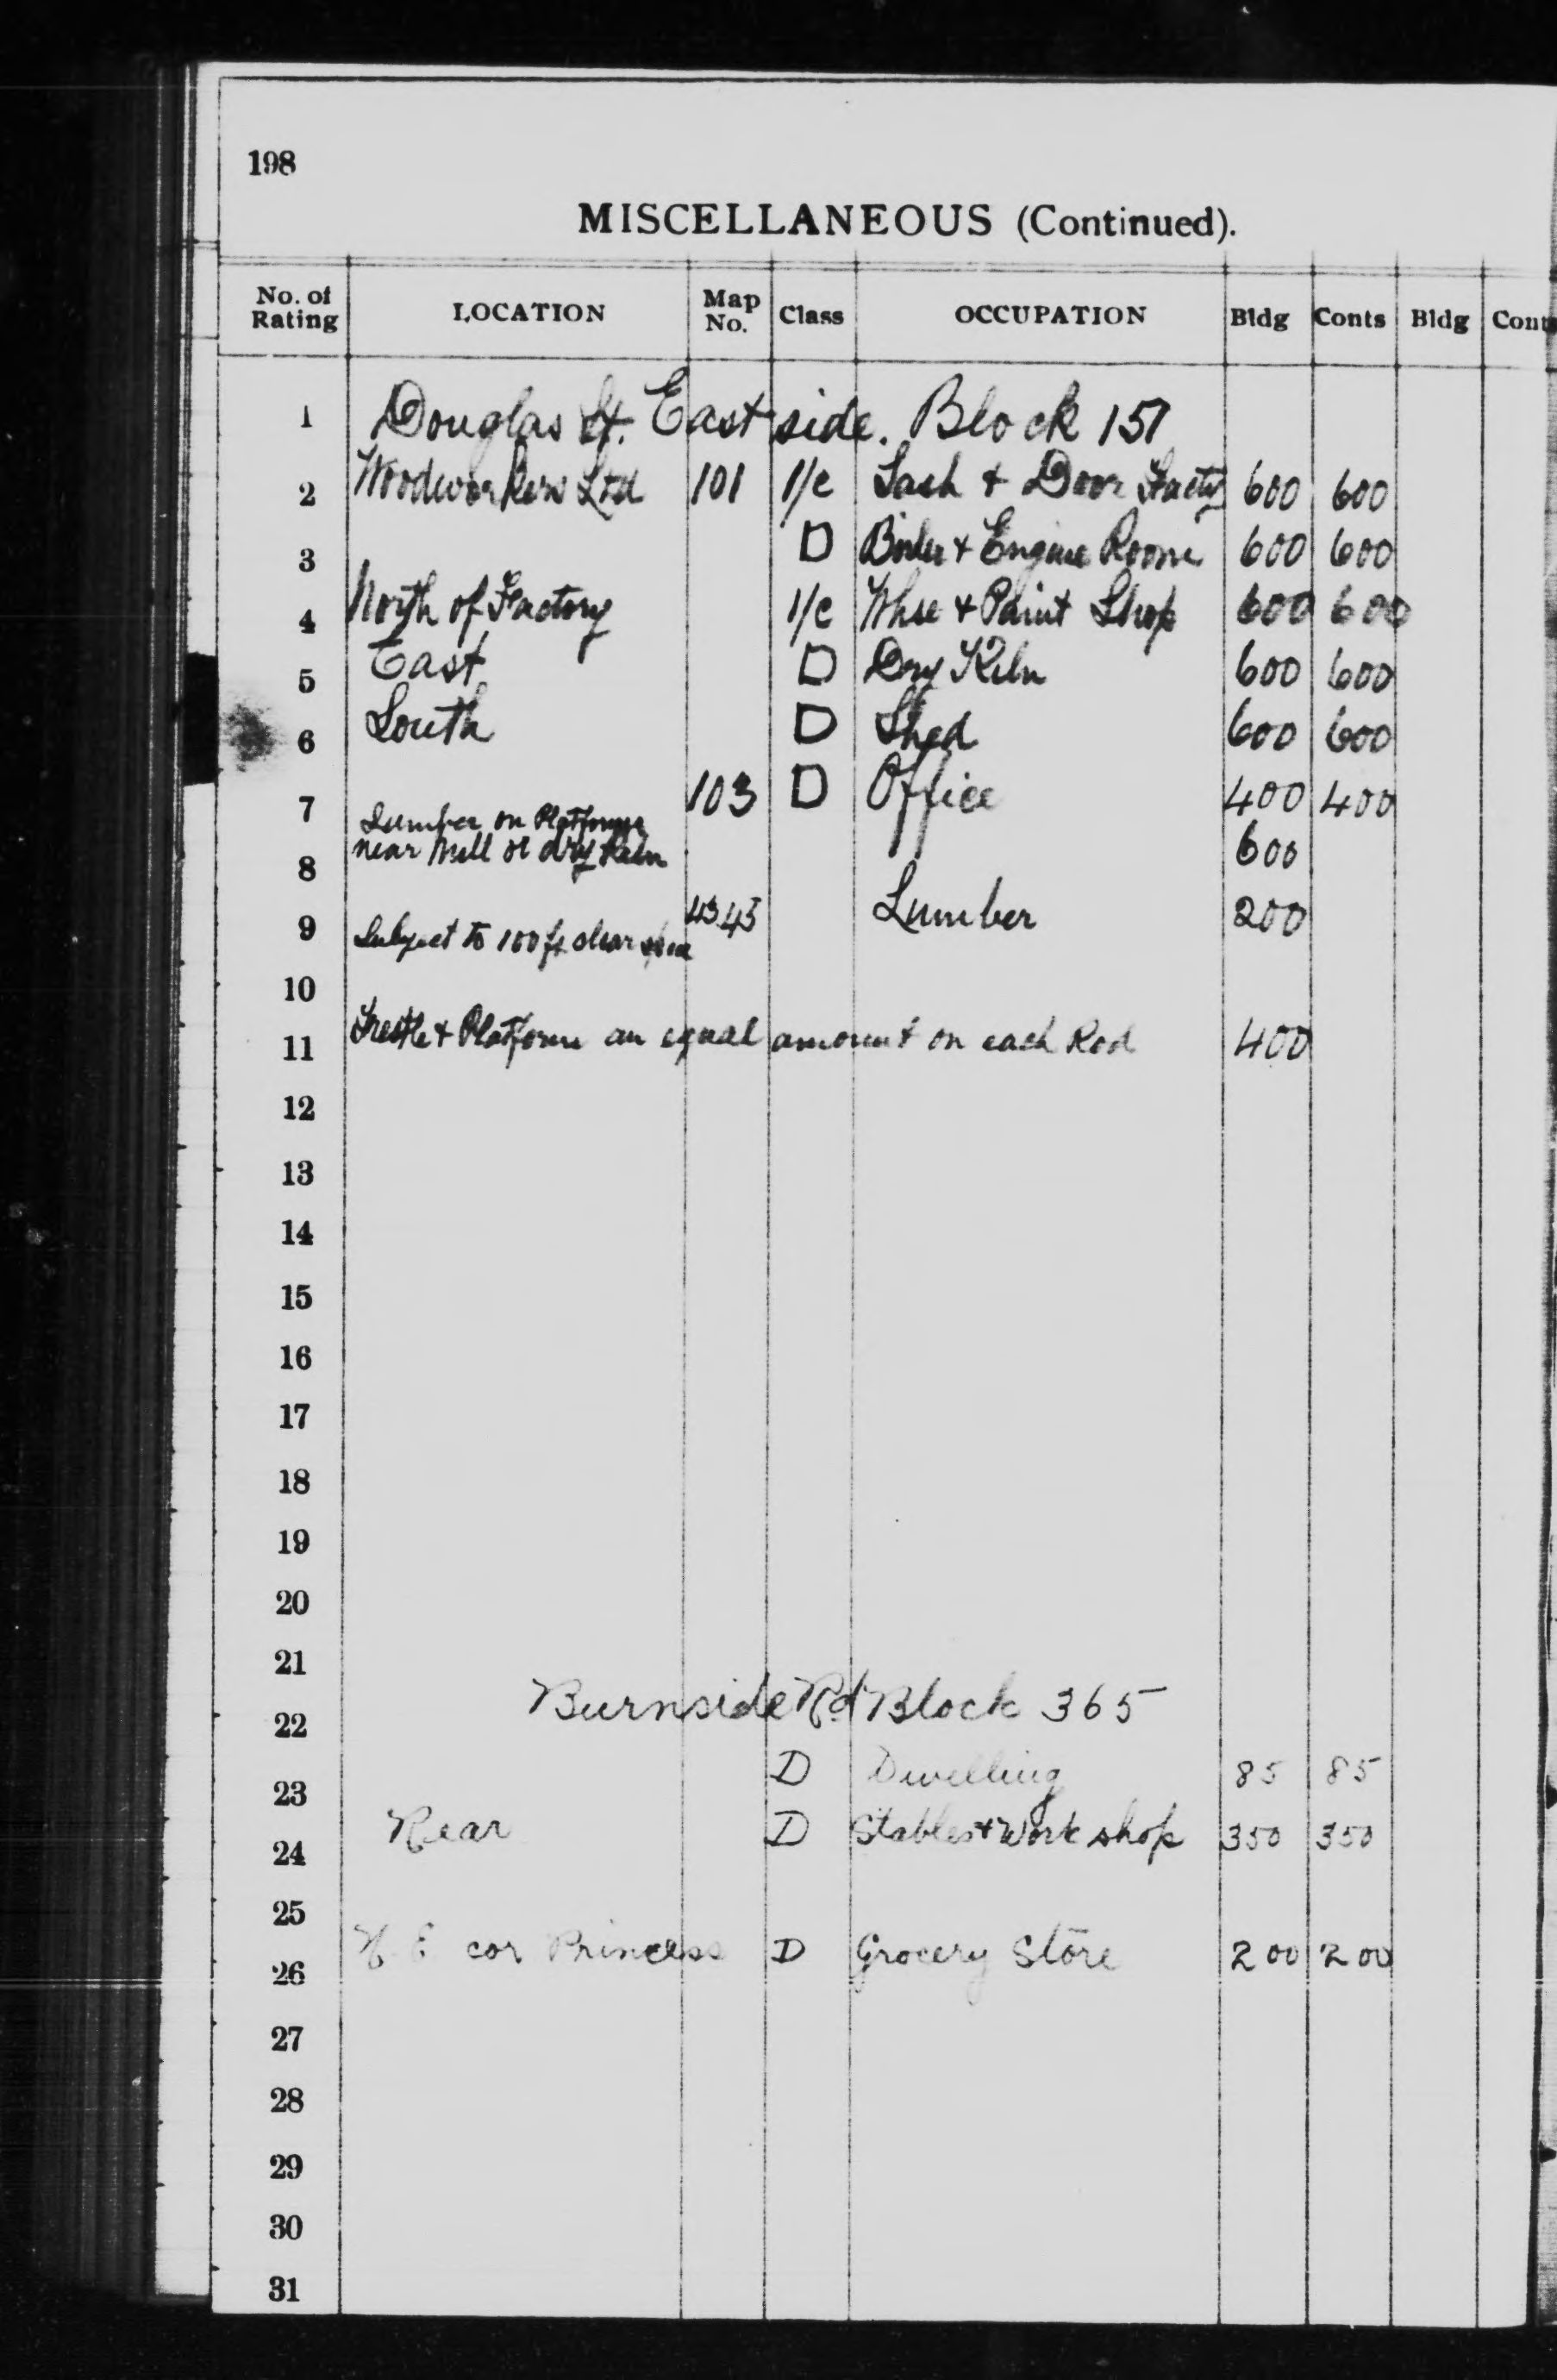 198
MISCELLANEOUS (Continued).
No. of Rating LOCATION Map No. Class OCCUPATION Bldg Conts Bldg Conts
1 Douglas St. East side. Block 151
2 Woodworkers Ltd 101 1/c Sash + Door Facty 600 600
3 D Boiler + Engine Room 600 600
4 North of Factory 1/c Whse + Paint Shop 600 600
5 East D Dry Kiln 600 600
6 South D Shed 600 600
7 103 D Office 400 400
Lumber on Platforms
8 near Mill or dry Kiln 600
9 Subject to 100 ft clear space 43.45 Lumber 200
10
11 Trestle + Platform an equal amount on each Rod 400
12
13
14
15
16
17
18
19
20
21
22 Burnside Rd Block 365
23 D Dwelling 85 85
24 Rear D Stables + Work shop 350 350
25
26 N E cor Princess D Grocery Store 200 200
27
28
29
30
31